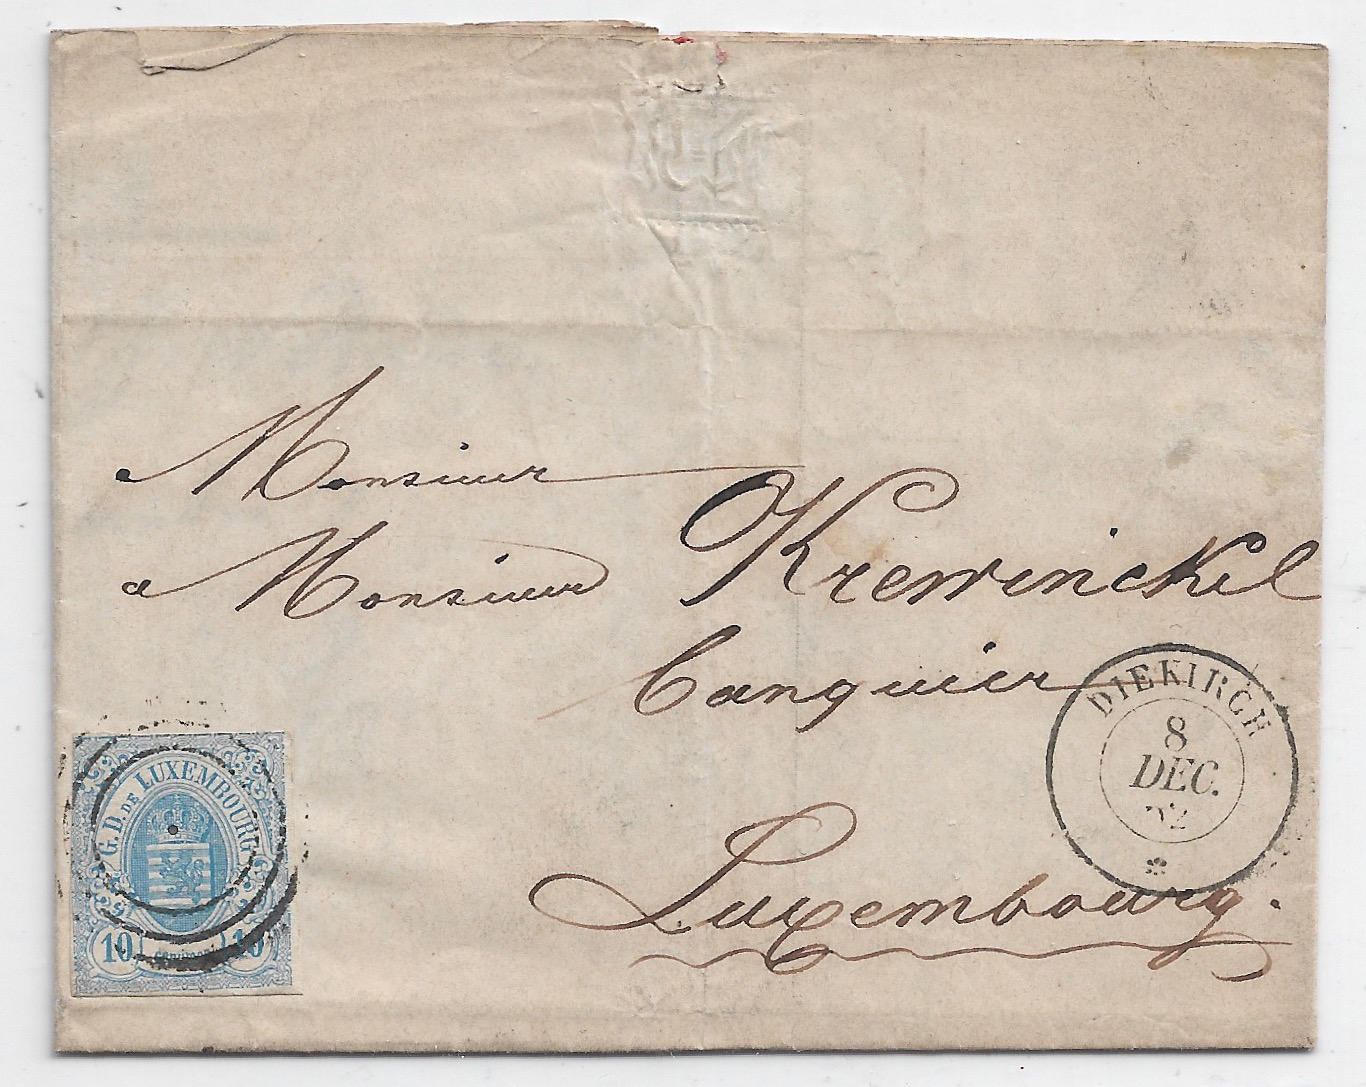 Monsieur
a Monsieur Krewinckel
banquier
DIEKIRCH
8
DEC.
Luxembourg.
G. D. DE LUXEMBOURG
10 10